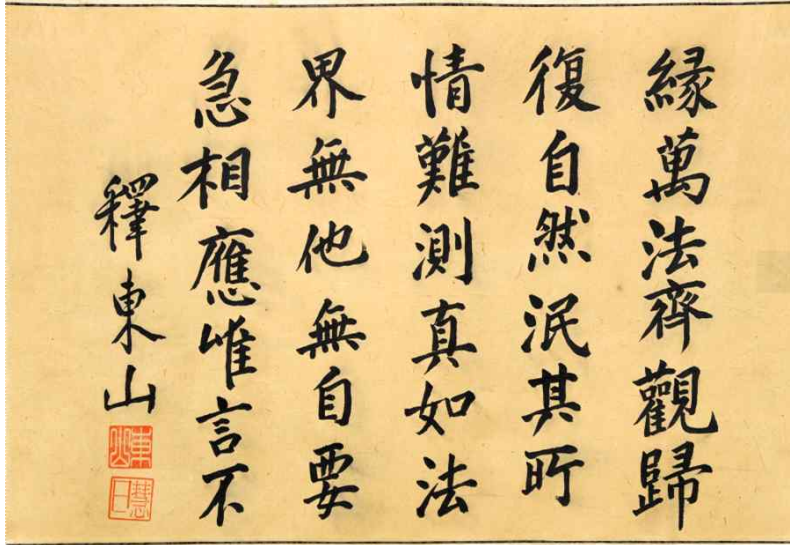 緣萬法齊觀歸
復自然泯其所
情難測真如法
界無他無自要
急相應唯言不
釋東山
東山
慧日